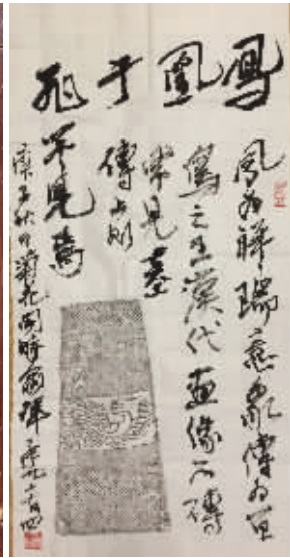 鳳凰于飛
鳳為祥瑞意象傳為百
鳥之王漢代畫像石磚
常見墓
磚少
不見焉
庚子秋月菊花開時